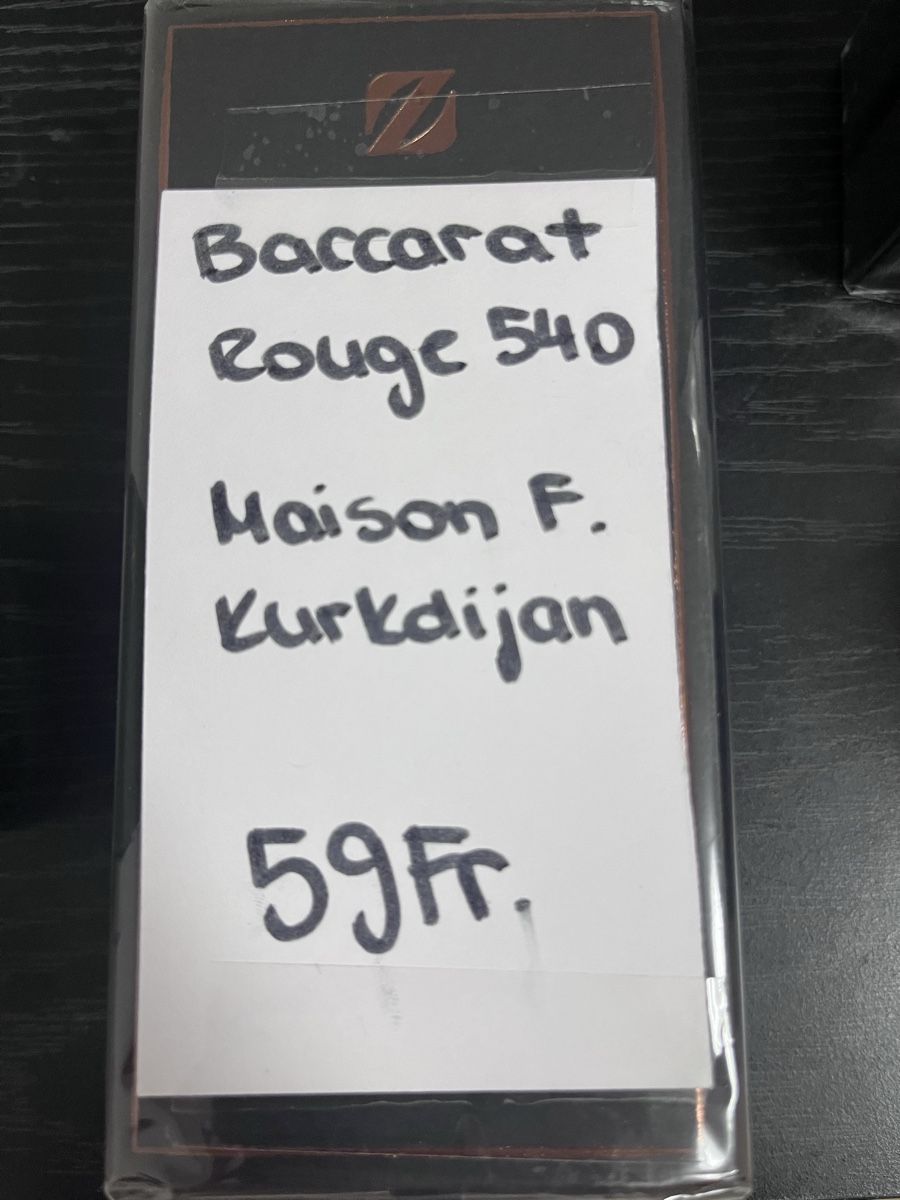 Baccarat
Rouge 540
Maison F.
Kurkdijan
59Fr.